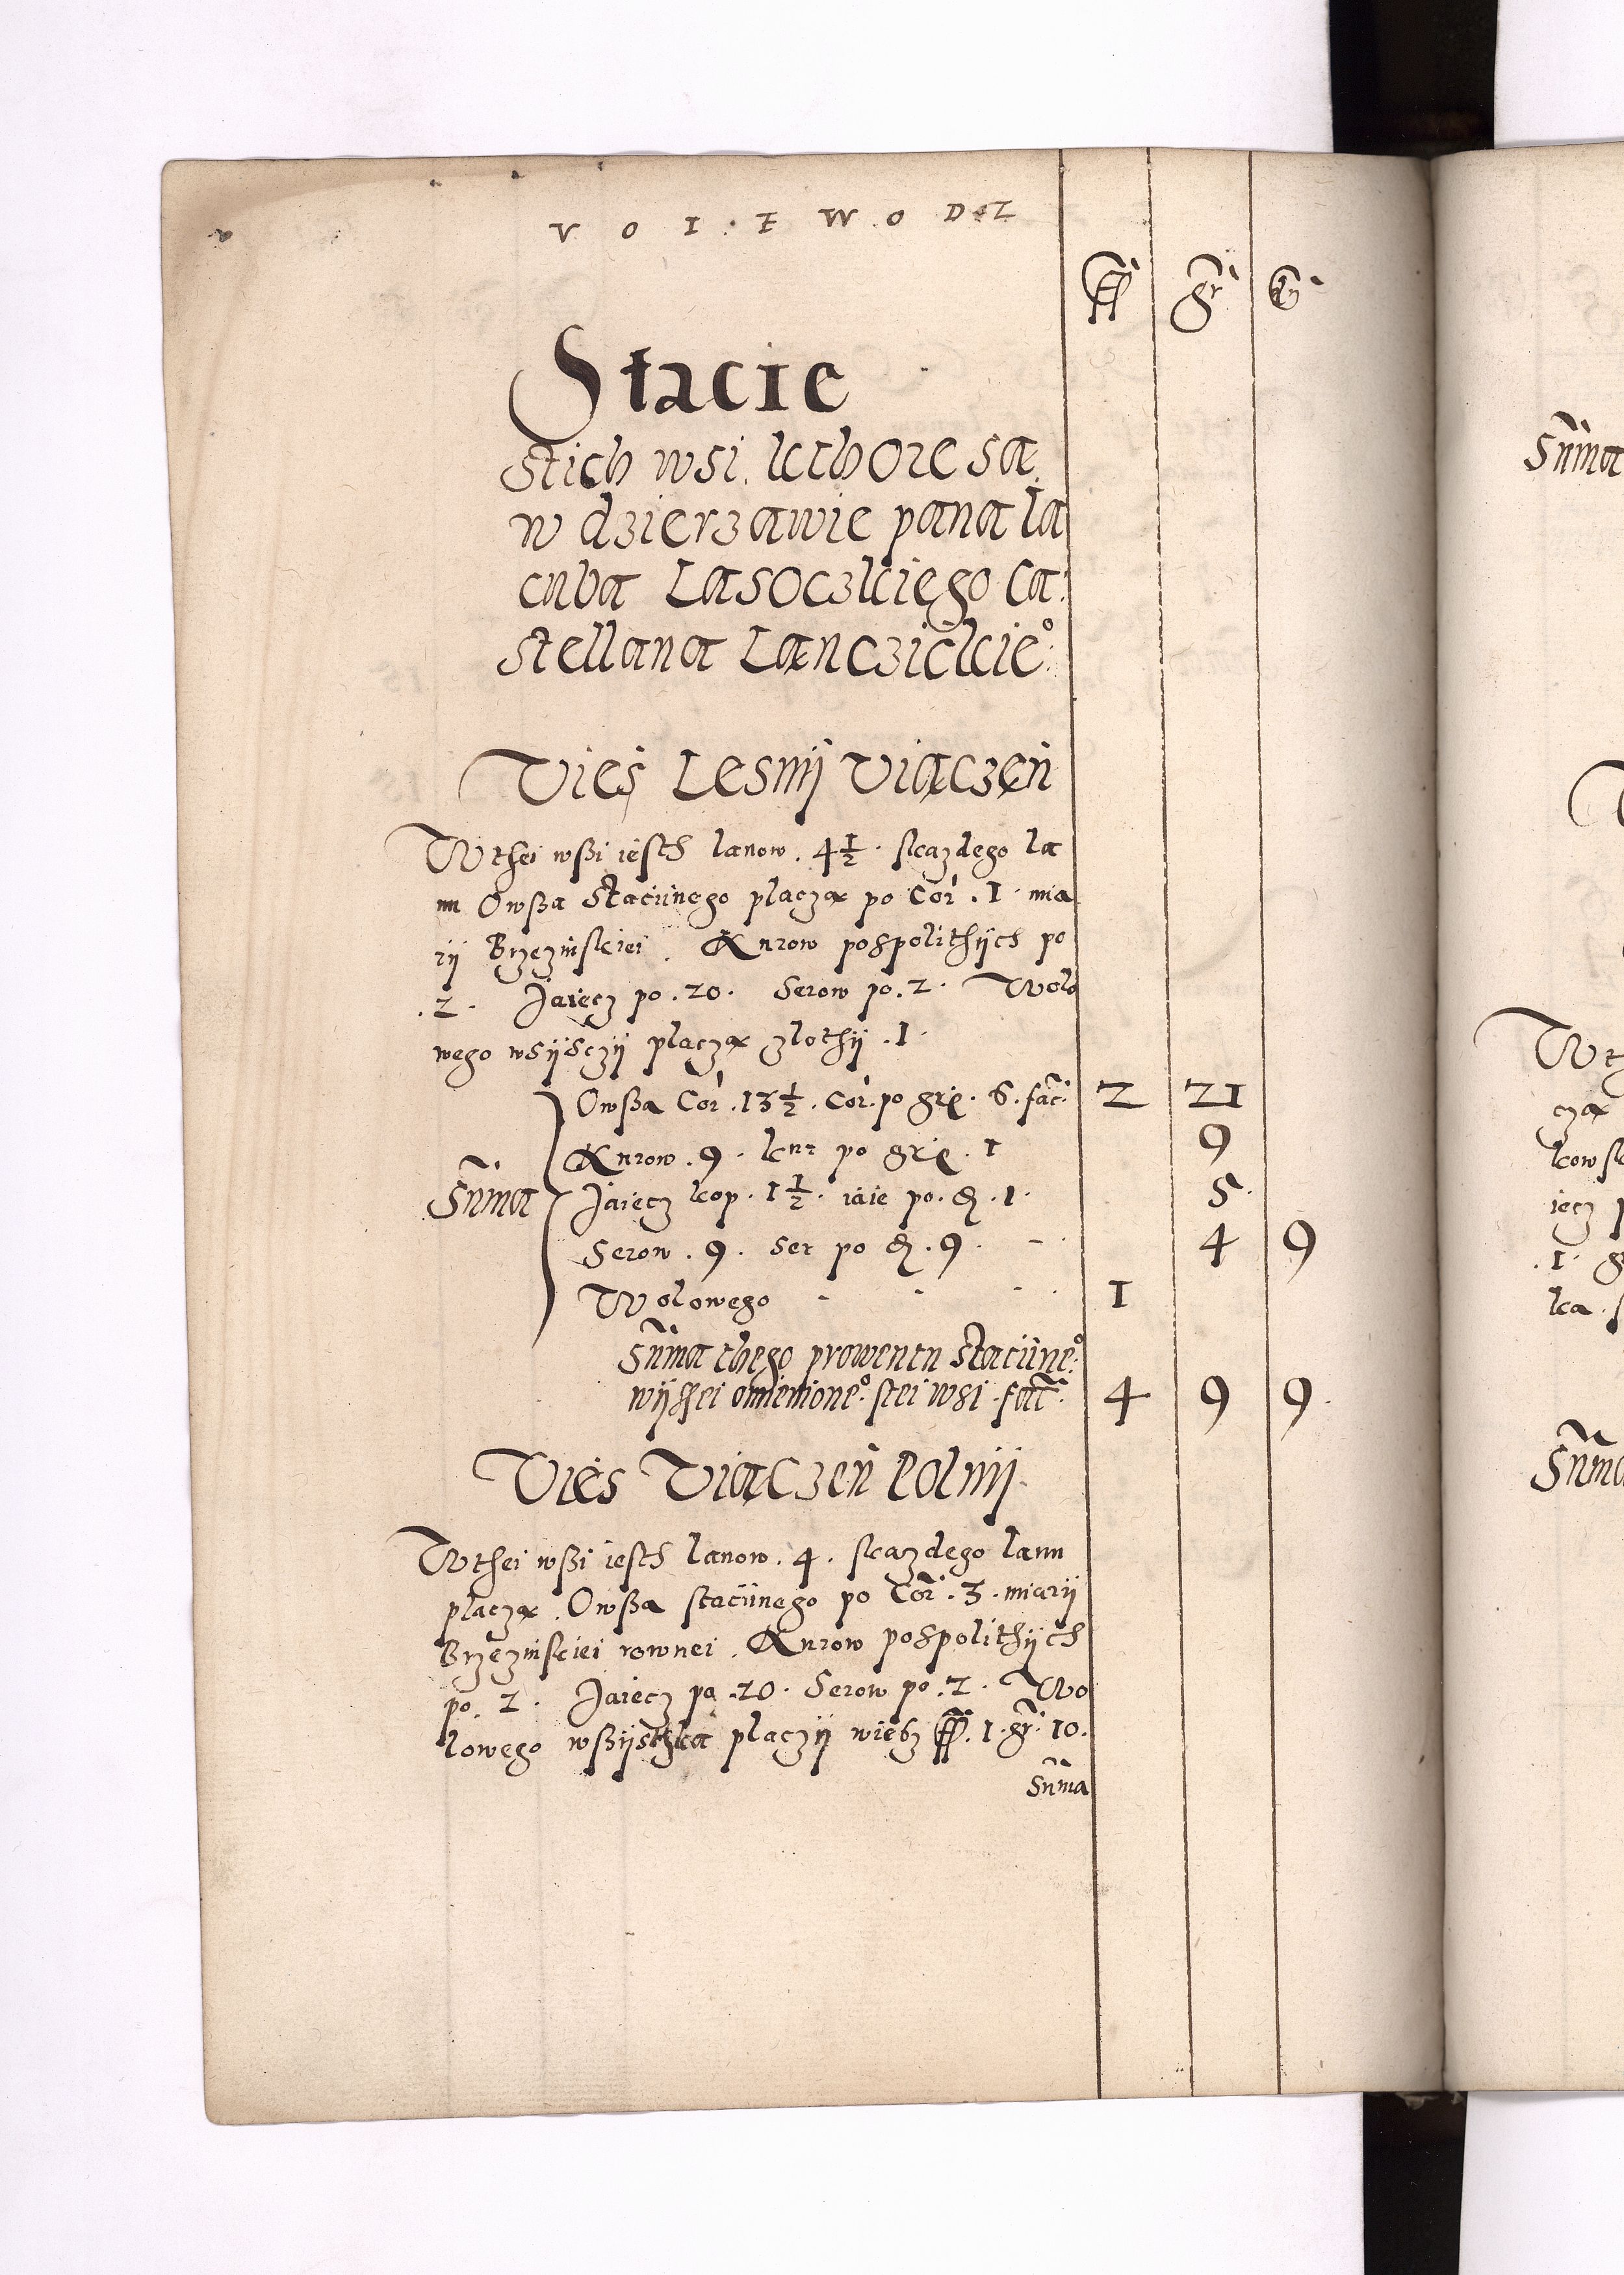 VOIEWODZ
fl gr den
Stacie
Stich wsi kthore są
w dzierzawie pana Ia
cuba Lasoczkiego Ca:
stellana Lancziczkie°:
Wies Lesnÿ Wiączeń
W thei wßi iesth lanow . 4½ . skazdego la
nu Owßa Staciinego placzą po Cor . 1 . mia
rÿ Brzezinskiei . Kurow pospolithÿch po
. 2 . Jaiecz po . 20 . Serow po . 2 . Wolo
wego wsÿsczÿ placzą zlothÿ . 1 .
Owßa Cor . 13½ . Cor. po grꝭ . 6 . fac. 2 21
Kurow . 9 . kur po grꝭ . 1 9
Suma Jaiecz kop . 1½ . iaie po . d . 1 . 5 .
Serow . 9 . Ser po d . 9 . 4 9
Wolowego 1
Suma thego prowentu Staciine°:
wÿssei omienione°. stei wsi . facit 4 9 9 .
Wies Wiączeń Polnÿ
W thei wßi iesth lanow . 4 . skazdego lanu
placzą . Owßa staciinego po Cor . 3 . miarÿ
Brzezinskiei rownei . Kurow pospolithÿch
po . 2 . Jaiecz po . 20 . Serow po . 2 . Wo
lowego wßÿstka placzÿ wiesz fl . 1 . gr . 10 .
Suma
Suma
W
W th
czą
kowsk
iecz p
. 1 . g
ka .
Suma